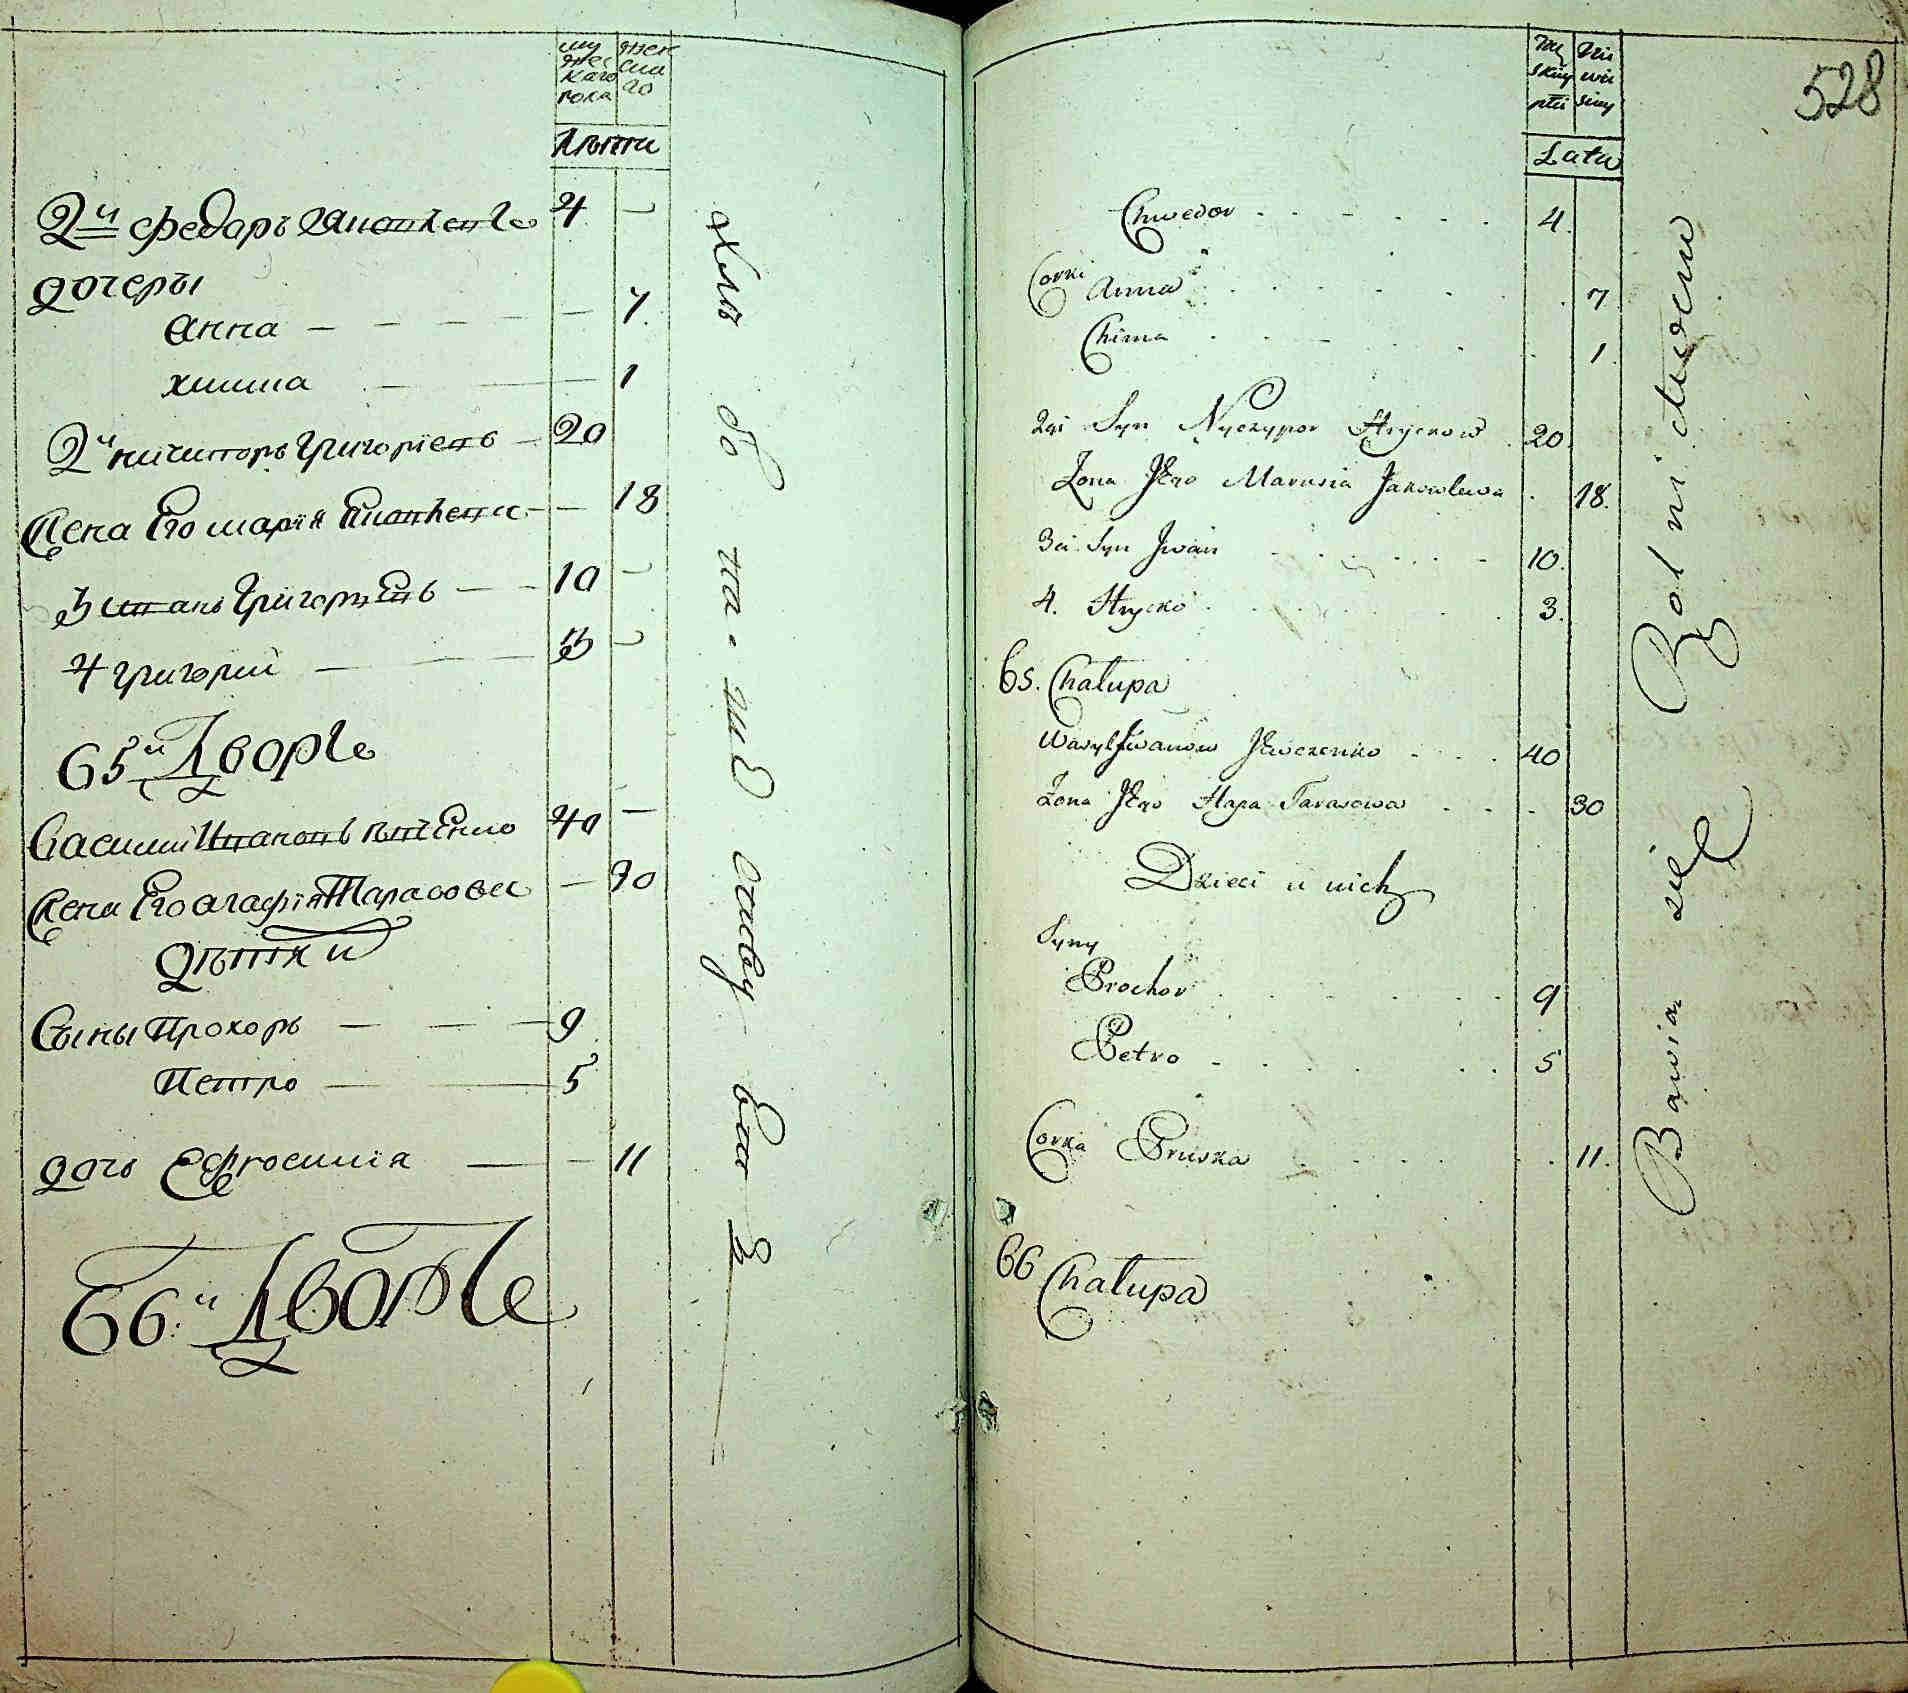 мужескаго пола
женскаго
Лѣта
2й Федаръ Яковлевъ 4
дочеры
Анна 7
Химка 1
2й Ничипоръ Григориевъ 20
Жена Его Мария 18
3 Иванъ Григориевъ 10
4 Григорий 3
65й Дворъ
Василий Ивановъ 40
Жена Его Агафія Тарасова 30
Дѣти
Сыны Прохоръ 9
Петро 5
дочь Ефросинія 11
66й Дворъ
528
Męskiey płci
Latu
Chwedor 4
Corki Anna 7
Chima 1
2gi Syn Nyczypor Hrycków 20
Żona Jego Marusia Jakowlewa 18
3ci Syn Jwan 10
4. Hrycko 3
65. Chałupa
Wasyl Jwanow Jewczenko 40
Żona Jego Hapa Tarasowa 30
Dzieci u nich
Syny
Prochor 9
Petro 5
Corka Pruska 11
66 Chałupa
Bawią się Rolnictwem